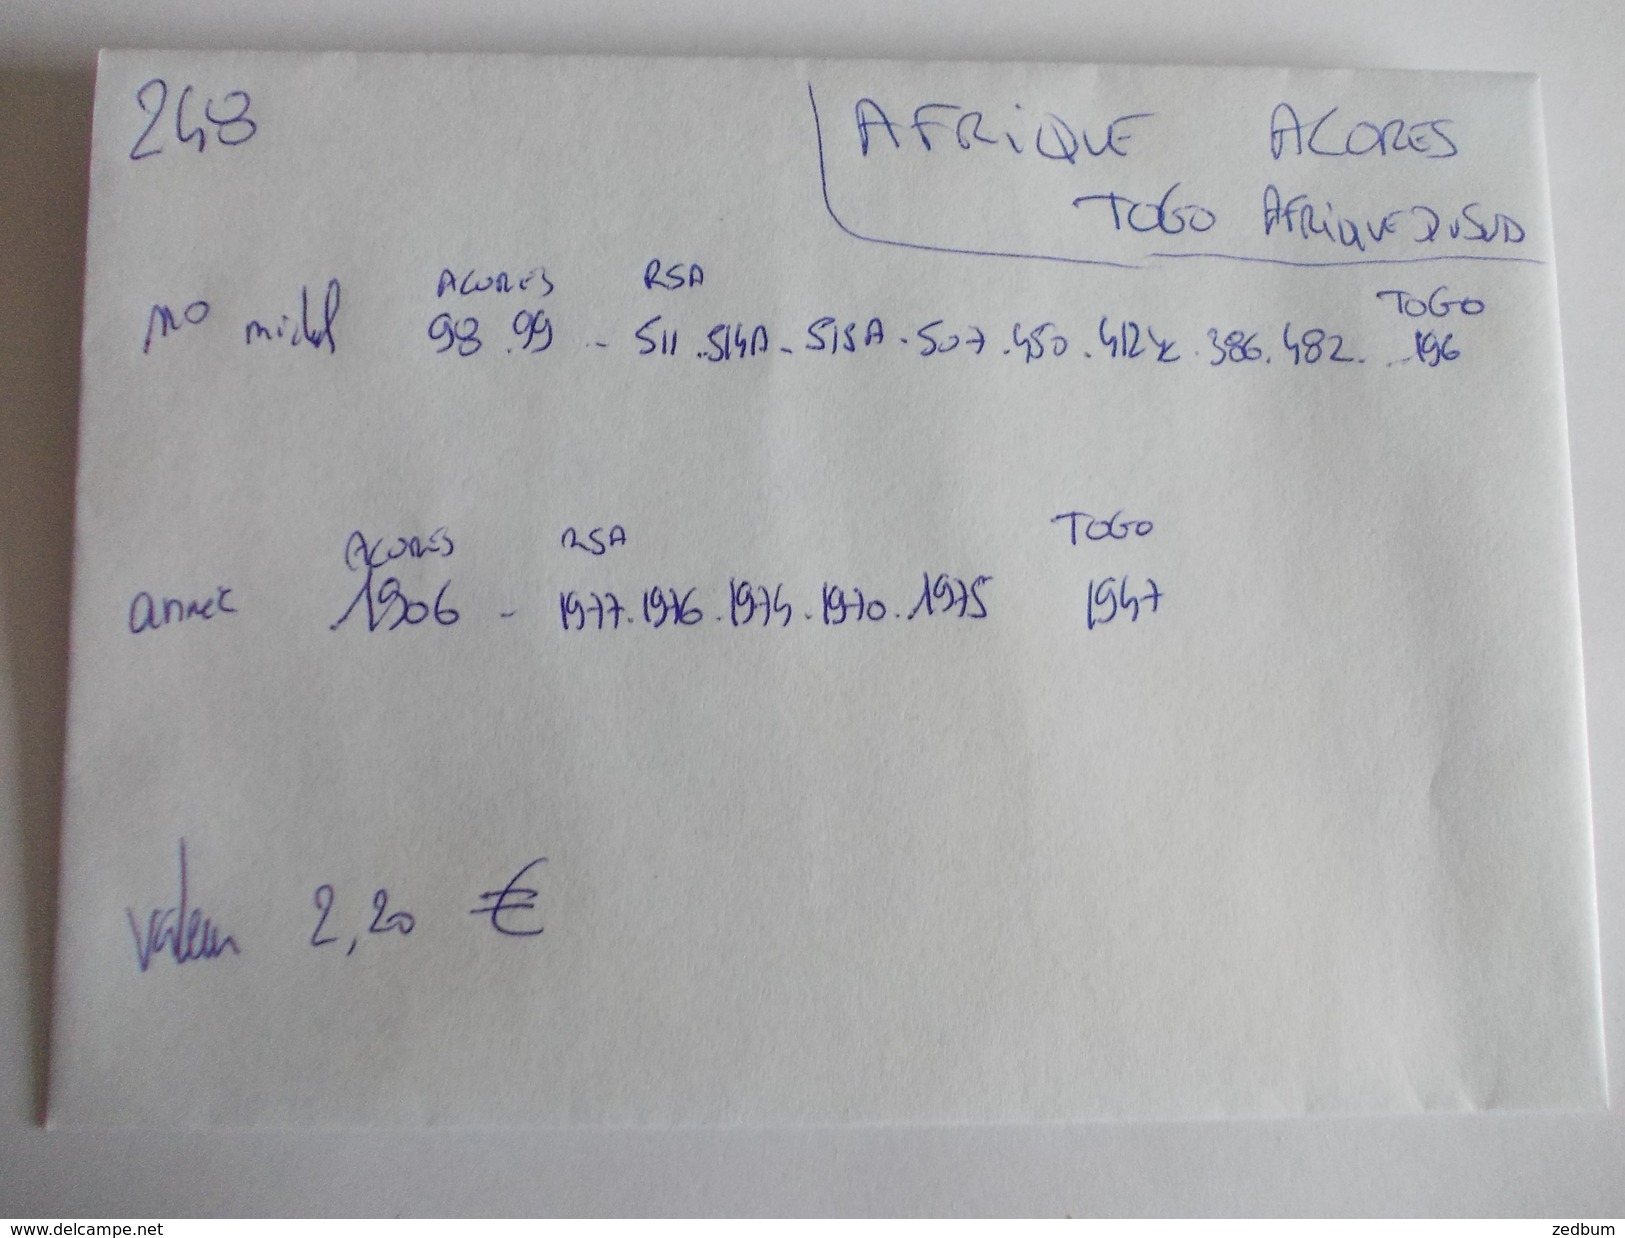 248
AFRIQUE ACORES
TOGO AFRIQUE DU SUD
ACORES RSA TOGO
no michel 98.99 - 511.514A-515A.507.450.412x.386.482. 196
ACORES RSA TOGO
année 1906 - 1977.1976.1974.1970.1975 1947
valeur 2,20 €
www.delcampe.net zedbum